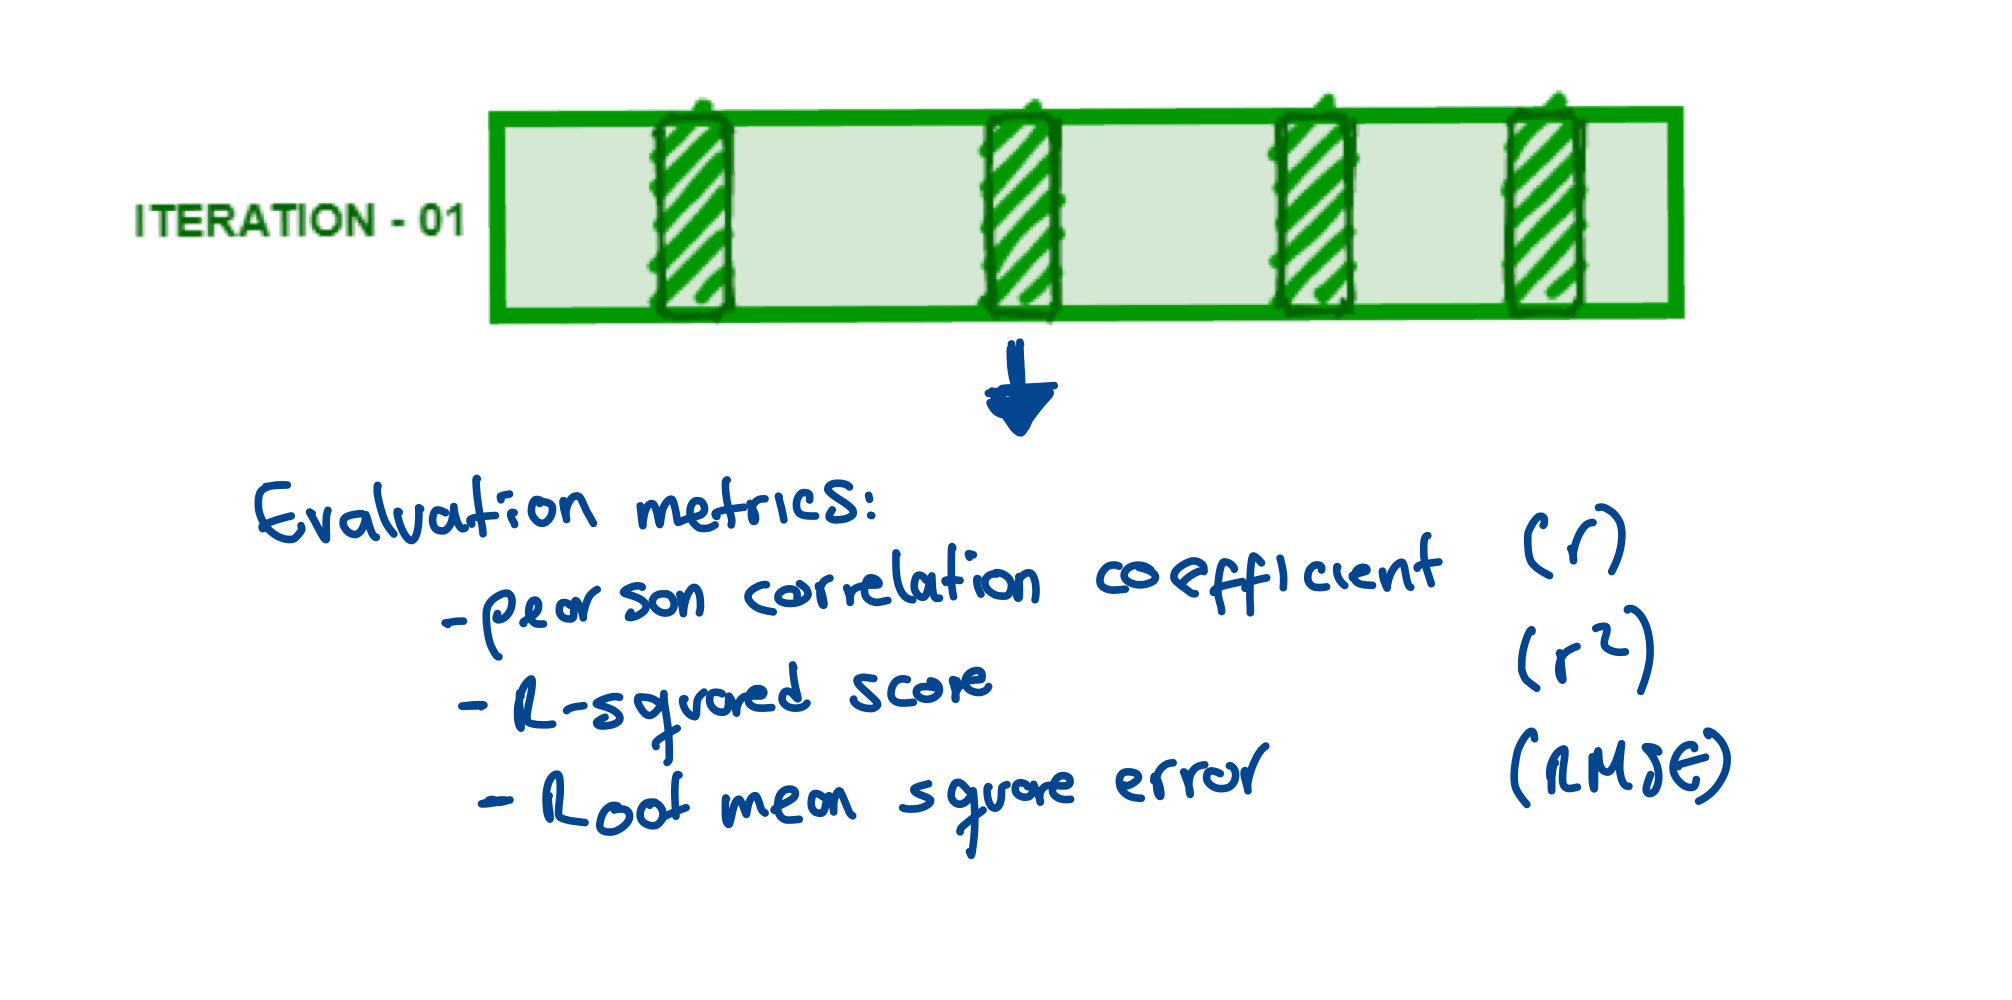 ITERATION - 01
Evaluation metrics:
- pearson correlation coefficient (r)
- R-squared score (r²)
- Root mean square error (RMSE)